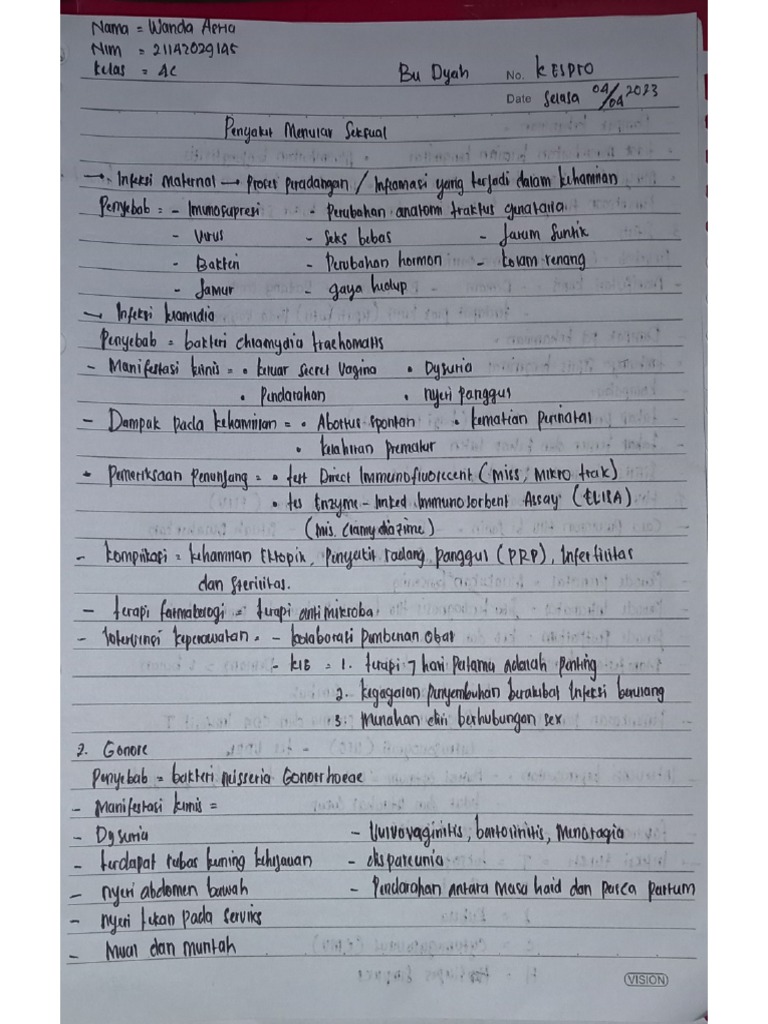 Nama = Wanda Aeria
Nim = 21142029145
Kelas = AC
Bu Dyah No. KESPRO
Date Selasa 04/04 2023
Penyakit Menular Seksual
→ Infeksi Maternal → Proses peradangan / Inflomasi yang terjadi dalam kehamilan
Penyebab = - Imunosupresi - Perubahan anatomi traktus genetalia
- Virus - Seks bebas - Jarum Suntik
- Bakteri - Perubahan hormon - kolam renang
- Jamur - gaya hidup
→ Infeksi klamidia
Penyebab = bakteri chlamydia trachomatis
- Manifestasi klinis = • keluar secret Vagina • Dysuria
• Pendarahan • nyeri panggus
- Dampak pada kehamilan = • Abortus spontan • kematian perinatal
• kelahiran prematur
- Pemeriksaan Penunjang = • test Direct Immunofluorecent (miss, Mikro trak)
• tes Enzyme - linked Immunosorbent Assay (ELISA)
(mis. Clamydiazime)
- komplikasi = kehamilan Ektopik, Penyakit radang panggul (PRP), Infertilitas
dan Sterilitas.
- terapi farmakologi = terapi antimikroba
- Intervensi keperawatan = - kolaborasi pemberian obat
- KIE = 1. terapi 7 hari Pertama adalah penting
2. kegagalan penyembuhan berakibat Infeksi berulang
3. Menahan diri berhubungan sex
2. Gonore
Penyebab = bakteri neisseria Gonorrhoeae
- Manifestasi klinis =
- Dysuria - Vulvovaginitis, bartolinitis, Menoragia
- terdapat rabas kuning kehijauan - disparcunia
- nyeri abdomen bawah - Pendarahan antara masa haid dan pasca partum
- nyeri tekan pada serviks
- Mual dan muntah
VISION